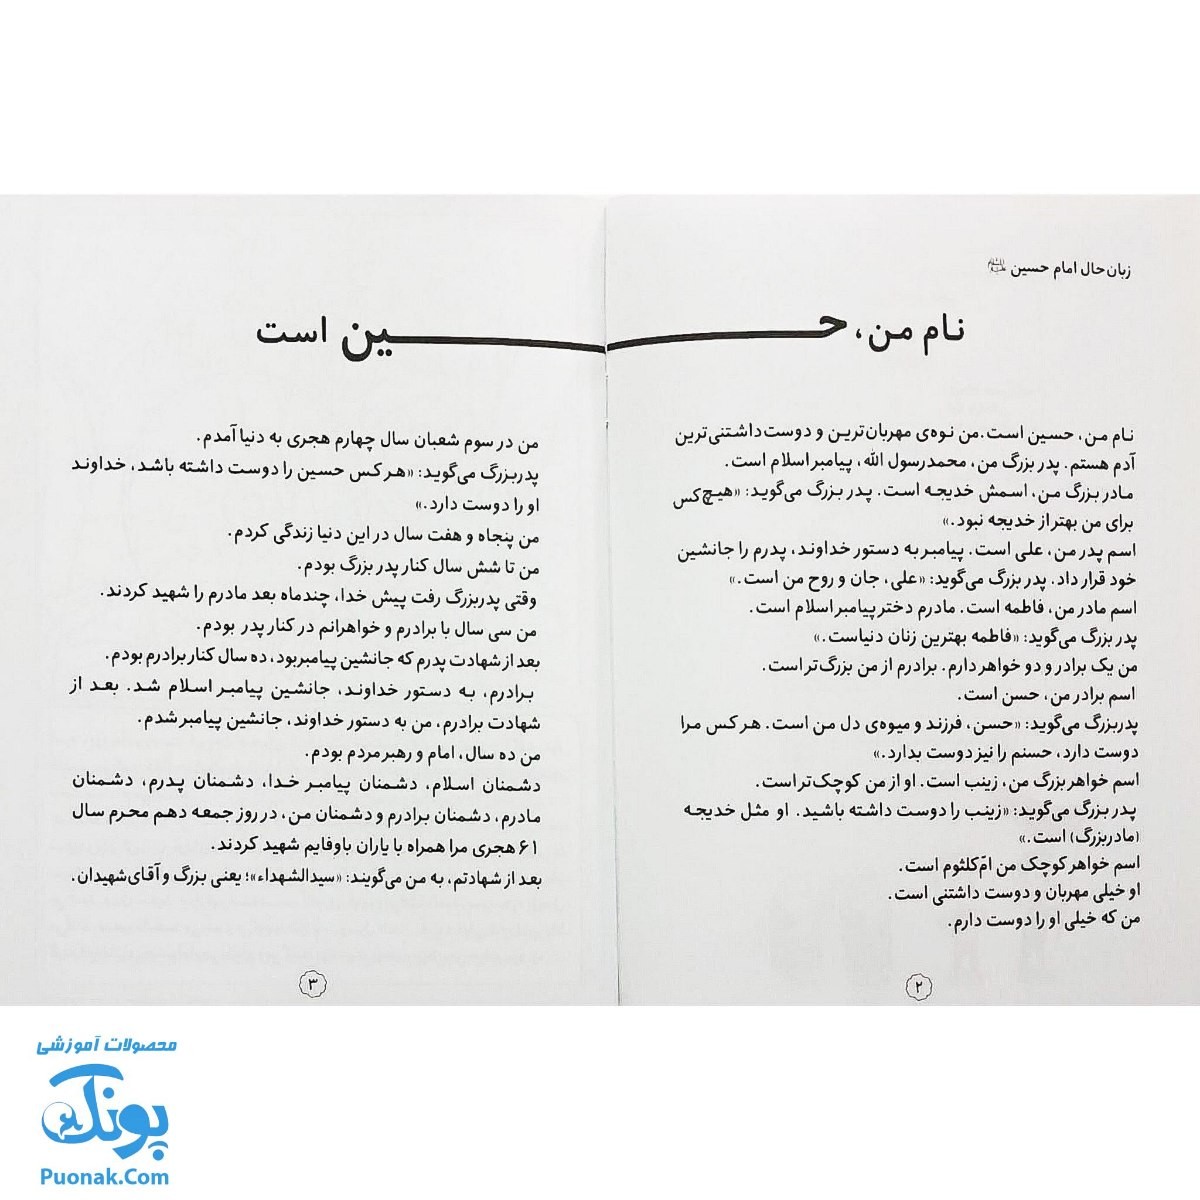 زبان‌حال امام حسین علیه‌السلام
نام من، حسین است
نام من، حسین است. من نوه‌ی مهربان‌ترین و دوست‌داشتنی‌ترین
آدم هستم. پدر بزرگ من، محمدرسول الله، پیامبر اسلام است.
مادر بزرگ من، اسمش خدیجه است. پدر بزرگ می‌گوید: «هیچ‌کس
برای من بهتر از خدیجه نبود.»
اسم پدر من، علی است. پیامبر به دستور خداوند، پدرم را جانشین
خود قرار داد. پدر بزرگ می‌گوید: «علی، جان و روح من است.»
اسم مادر من، فاطمه است. مادرم دختر پیامبر اسلام است.
پدر بزرگ می‌گوید: «فاطمه بهترین زنان دنیاست.»
من یک برادر و دو خواهر دارم. برادرم از من بزرگ‌تر است.
اسم برادر من، حسن است.
پدربزرگ می‌گوید: «حسن، فرزند و میوه‌ی دل من است. هر کس مرا
دوست دارد، حسنم را نیز دوست بدارد.»
اسم خواهر بزرگ من، زینب است. او از من کوچک‌تر است.
پدر بزرگ می‌گوید: «زینب را دوست داشته باشید. او مثل خدیجه
(مادربزرگ) است.»
اسم خواهر کوچک من امّ‌کلثوم است.
او خیلی مهربان و دوست داشتنی است.
من که خیلی او را دوست دارم.
۲
من در سوم شعبان سال چهارم هجری به دنیا آمدم.
پدربزرگ می‌گوید: «هر کس حسین را دوست داشته باشد، خداوند
او را دوست دارد.»
من پنجاه و هفت سال در این دنیا زندگی کردم.
من تا شش سال کنار پدر بزرگ بودم.
وقتی پدربزرگ رفت پیش خدا، چندماه بعد مادرم را شهید کردند.
من سی سال با برادرم و خواهرانم در کنار پدر بودم.
بعد از شهادت پدرم که جانشین پیامبر بود، ده سال کنار برادرم بودم.
برادرم، به دستور خداوند، جانشین پیامبر اسلام شد. بعد از
شهادت برادرم، من به دستور خداوند، جانشین پیامبر شدم.
من ده سال، امام و رهبر مردم بودم.
دشمنان اسلام، دشمنان پیامبر خدا، دشمنان پدرم، دشمنان
مادرم، دشمنان برادرم و دشمنان من، در روز جمعه دهم محرم سال
۶۱ هجری مرا همراه با یاران باوفایم شهید کردند.
بعد از شهادتم، به من می‌گویند: «سیدالشهداء»؛ یعنی بزرگ و آقای شهیدان.
۳
محصولات آموزشی
پونک
Puonak.Com